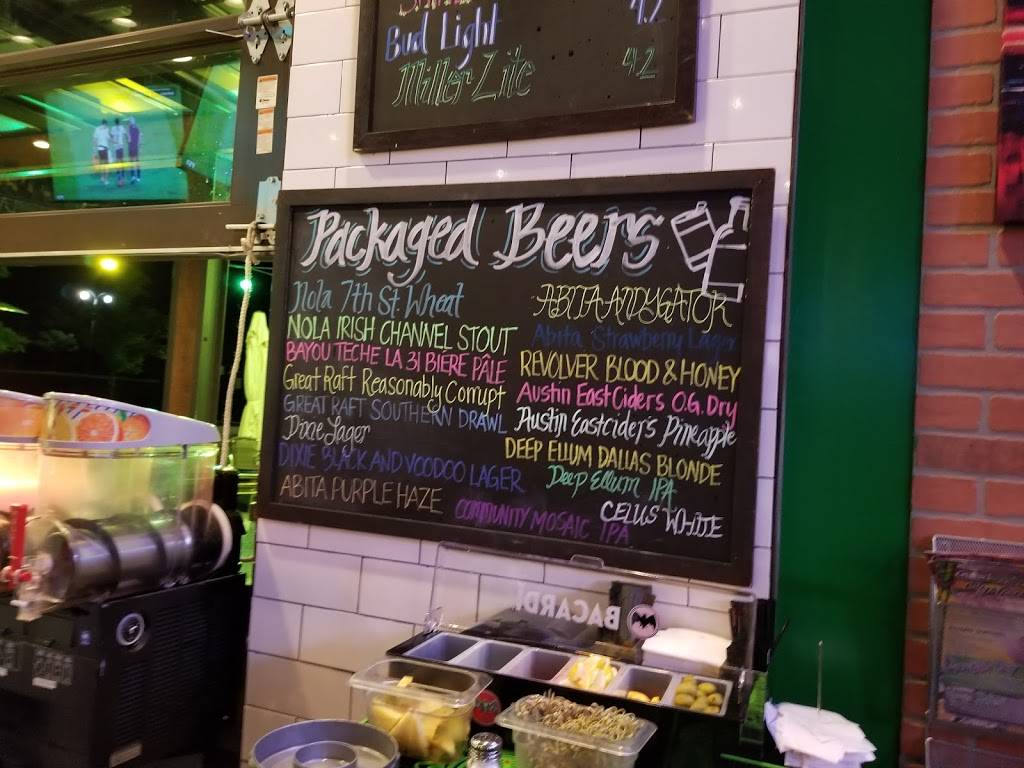 Bud Light 42
Miller Lite 42
Packaged Beers
Nola 7th St. Wheat
NOLA IRISH CHANNEL STOUT
BAYOU TECHE LA 31 BIÈRE PÂLE
Great Raft Reasonably Corrupt
GREAT RAFT SOUTHERN DRAWL
Dixie Lager
DIXIE BLACK AND VOODOO LAGER
ABITA PURPLE HAZE
ABITA ANDYGATOR
Abita Strawberry Lager
REVOLVER BLOOD & HONEY
Austin EastCiders O.G. Dry
Austin Eastciders Pineapple
DEEP ELLUM DALLAS BLONDE
Deep Ellum IPA
CELUS WHITE
COMMUNITY MOSAIC IPA
BACARDI